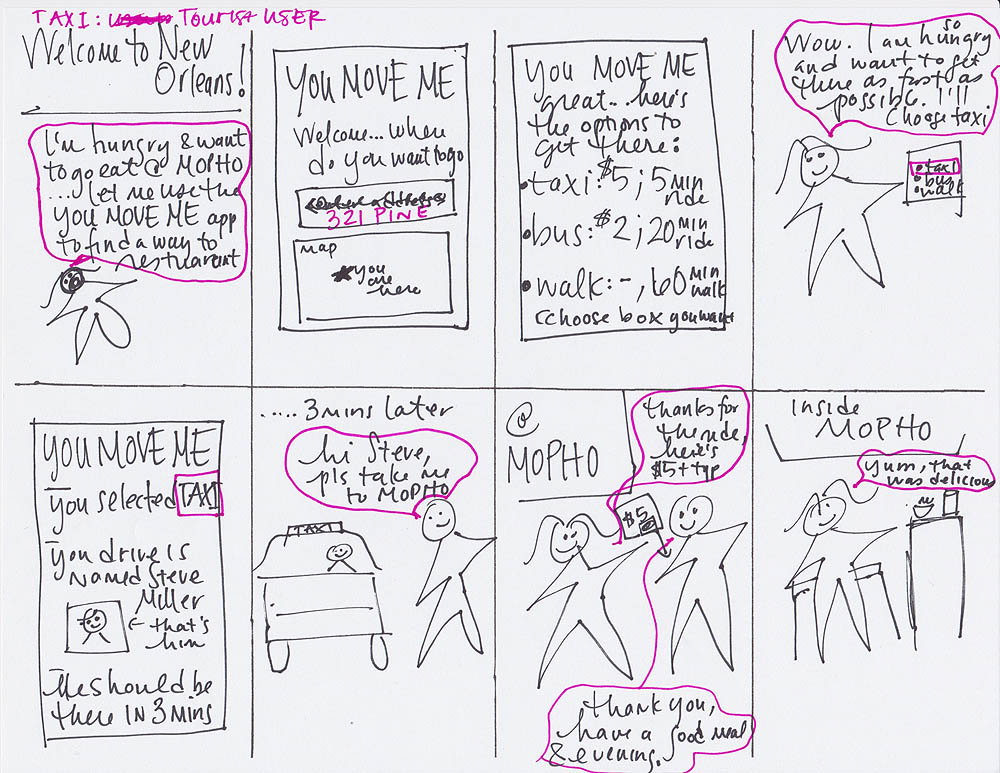 TAXI: TOURIST USER
Welcome to New
Orleans!
I'm hungry & want
to go eat @ MOPHO
...let me use the
YOU MOVE ME app
to find a way to
restuarant
YOU MOVE ME
Welcome... where
do you want to go
321 PINE
map
you
are
here
YOU MOVE ME
great... here's
the options to
get there:
• taxi: $5; 5 min
ride
• bus: $2; 20 min
ride
• walk: -, 60 min
walk
(choose box you want
Wow. I am so hungry
and want to get
there as fast as
possible. I'll
choose taxi
• taxi
• bus
• walk
YOU MOVE ME
You selected TAXI
You drive is
named Steve
Miller
← that's
him
He should be
there IN 3 mins
..... 3 mins later
hi Steve,
pls take me
to MOPHO
TAXI
@
MOPHO
thanks for
the ride,
here's
$5 + typ
$5
thank you,
have a good meal
& evening.
Inside
MOPHO
Yum, that
was delicious